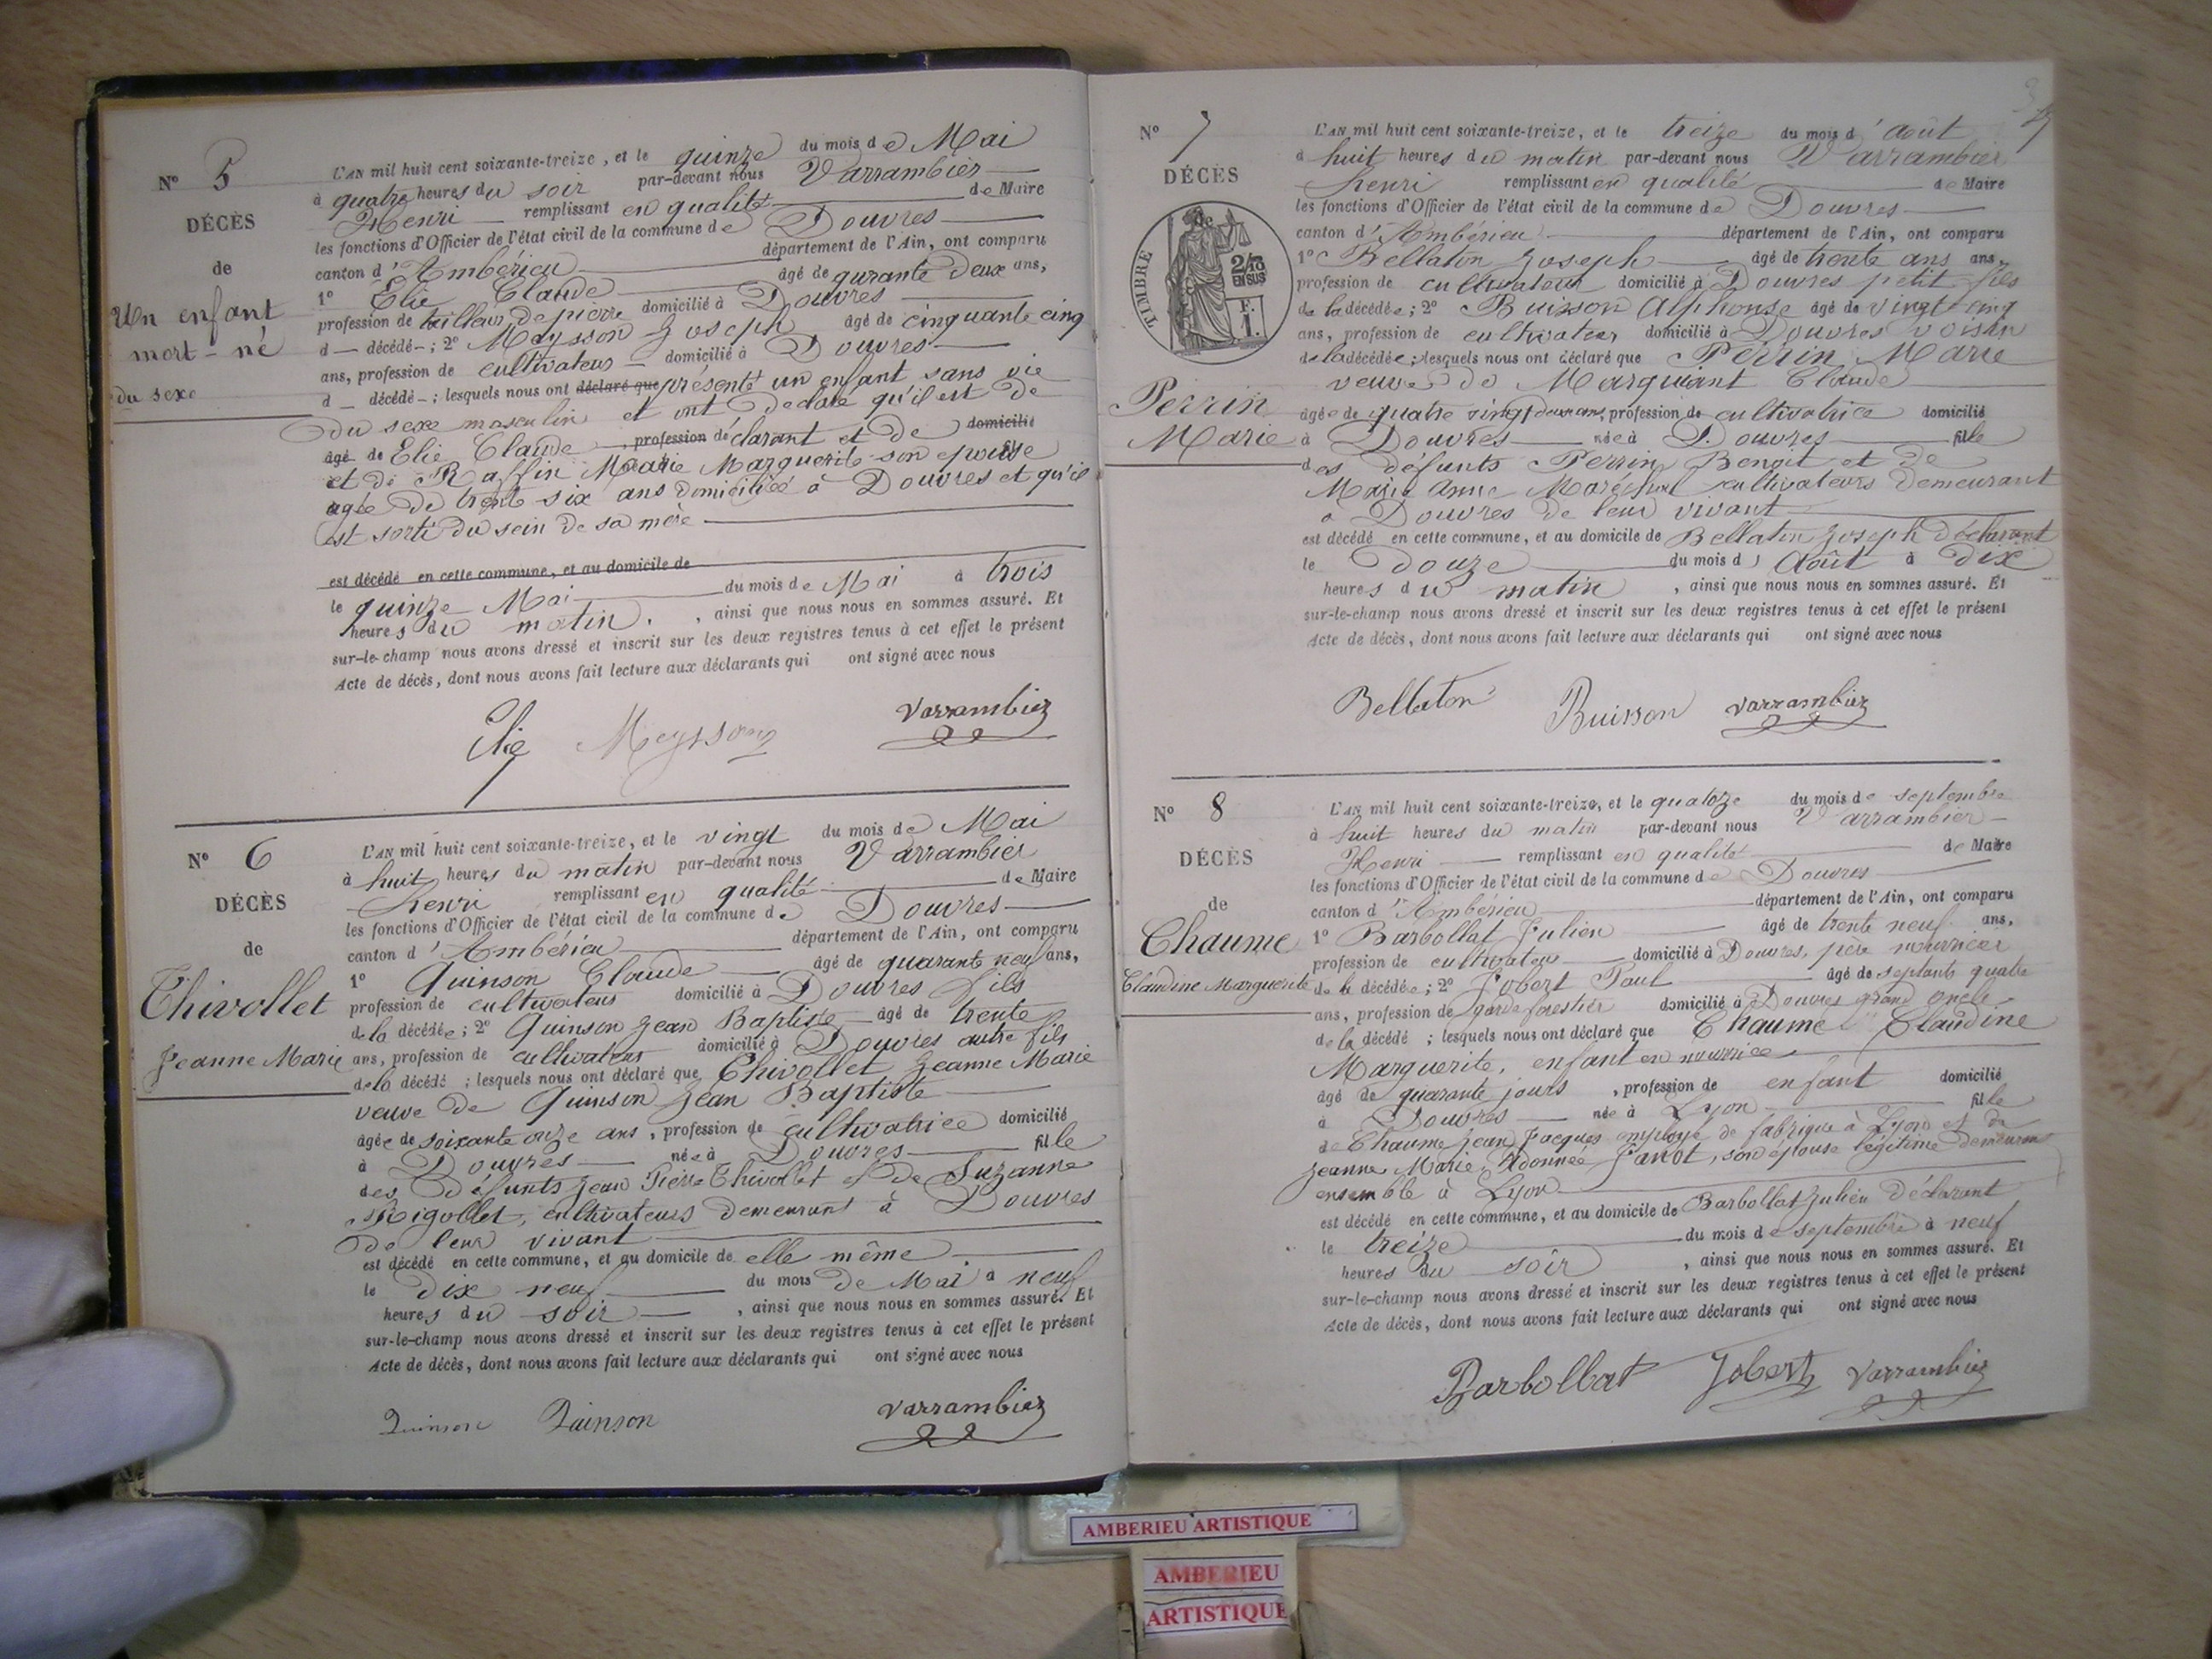 N° 5
DÉCÈS
de
Un enfant
mort-né
du sexe
L'AN mil huit cent soixante-treize, et le quinze du mois de Mai
à quatre heures du soir par-devant nous Varrambier
Henri remplissant en qualité de Maire
les fonctions d'Officier de l'état civil de la commune de Douvres
canton d'Ambérieu département de l'Ain, ont comparu
1° Élie Claude âgé de qurante deux ans,
profession de tailleur de pierre domicilié à Douvres
d — décédé - ; 2° Maysson Joseph âgé de cinquante cinq
ans, profession de cultivateur domicilié à Douvres
d — décédé - ; lesquels nous ont déclaré que présenté un enfant sans vie
du sexe masculin et ont déclaré qu'il est de
âgé de Elie Claude, profession de clarant et de domicilié
et de Raffin Marie Marguerite son épouse
agée de trente six ans domiciliée à Douvres et qu'il
est sorti du sein de sa mère
est décédé en cette commune, et au domicile de
le quinze Mai du mois de Mai à trois
heures du matin, ainsi que nous nous en sommes assuré. Et
sur-le-champ nous avons dressé et inscrit sur les deux registres tenus à cet effet le présent
Acte de décès, dont nous avons fait lecture aux déclarants qui ont signé avec nous
Elie Meysson Varrambier
N° 6
DÉCÈS
de
Thivollet
Jeanne Marie
L'AN mil huit cent soixante-treize, et le vingt du mois de Mai
à huit heures du matin par-devant nous Varrambier
Henri remplissant en qualité de Maire
les fonctions d'Officier de l'état civil de la commune de Douvres
canton d'Ambérieu département de l'Ain, ont comparu
1° Quinson Claude âgé de quarante neuf ans,
profession de cultivateur domicilié à Douvres fils
de la décédée ; 2° Quinson Jean Baptiste âgé de trente
ans, profession de cultivateur domicilié à Douvres autre fils
de la décédé ; lesquels nous ont déclaré que Thivollet Jeanne Marie
veuve de Quinson Jean Baptiste
âgée de soixante onze ans, profession de cultivatrice domicilié
à Douvres née à Douvres fille
des défunts Jean Pierre Thivollet et de Suzanne
Rigollet, cultivateurs demeurant à Douvres
de leur vivant
est décédé en cette commune, et au domicile de elle même
le dix neuf du mois de Mai à neuf
heures du soir, ainsi que nous nous en sommes assuré. Et
sur-le-champ nous avons dressé et inscrit sur les deux registres tenus à cet effet le présent
Acte de décès, dont nous avons fait lecture aux déclarants qui ont signé avec nous
Quinson Quinson Varrambier
N° 7
DÉCÈS
de
TIMBRE
2/10
EN SUS
F.
1.
Perrin
Marie
L'AN mil huit cent soixante-treize, et le treize du mois d'août
à huit heures du matin par-devant nous Varrambier
Henri remplissant en qualité de Maire
les fonctions d'Officier de l'état civil de la commune de Douvres
canton d'Ambérieu département de l'Ain, ont comparu
1° Bellaton Joseph âgé de trente ans ans,
profession de cultivateur domicilié à Douvres petit fils
de la décédée ; 2° Buisson Alphonse âgé de vingt cinq
ans, profession de cultivateur domicilié à Douvres voisin
de la décédée ; lesquels nous ont déclaré que Perrin Marie
veuve de Marguiant Claude
âgée de quatre vingt deux ans, profession de cultivatrice domicilié
à Douvres née à Douvres fille
des défunts Perrin Benoit et de
Marie Anne Maréchal cultivateurs demeurant
à Douvres de leur vivant
est décédé en cette commune, et au domicile de Bellaton Joseph déclarant
le douze du mois d'Août à dix
heures du matin, ainsi que nous nous en sommes assuré. Et
sur-le-champ nous avons dressé et inscrit sur les deux registres tenus à cet effet le présent
Acte de décès, dont nous avons fait lecture aux déclarants qui ont signé avec nous
Bellaton Buisson Varrambier
N° 8
DÉCÈS
de
Chaume
Claudine Marguerite
L'AN mil huit cent soixante-treize, et le quatoze du mois de septembre
à huit heures du matin par-devant nous Varrambier
Henri remplissant en qualité de Maire
les fonctions d'Officier de l'état civil de la commune de Douvres
canton d'Ambérieu département de l'Ain, ont comparu
1° Barbollat Julien âgé de trente neuf ans,
profession de cultivateur domicilié à Douvres, père nourricier
de la décédée ; 2° Jobert Paul âgé de septante quatre
ans, profession de garde forestier domicilié à Douvres grand oncle
de la décédé ; lesquels nous ont déclaré que Chaume Claudine
Marguerite, enfant en nourrice
âgé de quarante jours, profession de enfant domicilié
à Douvres née à Lyon fille
de Chaume Jean Jacques employé de fabrique à Lyon et de
Jeanne Marie Adonnée Janot, son épouse légitime demeurant
ensemble à Lyon
est décédé en cette commune, et au domicile de Barbollat Julien déclarant
le treize du mois de septembre à neuf
heures du soir, ainsi que nous nous en sommes assuré. Et
sur-le-champ nous avons dressé et inscrit sur les deux registres tenus à cet effet le présent
Acte de décès, dont nous avons fait lecture aux déclarants qui ont signé avec nous
Barbollat Jobert Varrambier
AMBERIEU ARTISTIQUE
AMBERIEU
ARTISTIQUE